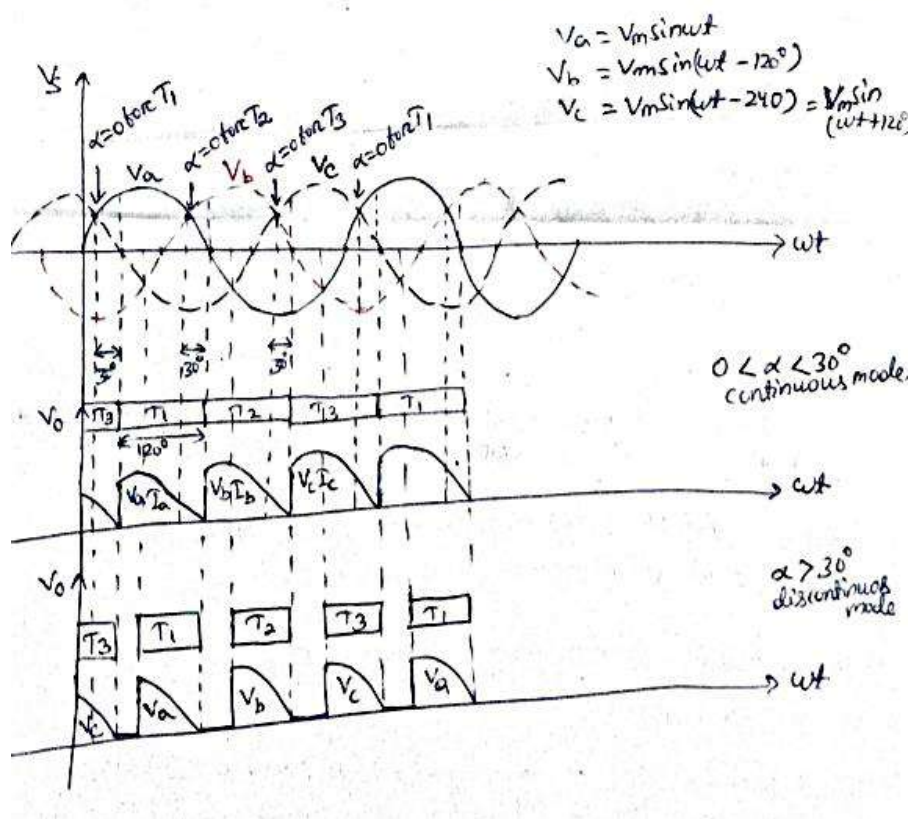 Va = Vmsinωt
Vb = Vmsin(ωt - 120°)
Vc = Vmsin(ωt - 240) = Vmsin
(ωt+120°)
Vs
α=0 for T1
α=0 for T2
α=0 for T3
α=0 for T1
Va
Vb
Vc
ωt
30°
30°
30°
0 < α < 30°
continuous mode.
Vo
T3 T1 T2 T3 T1
120°
Va Ia Vb Ib Vc Ic
ωt
Vo
α > 30°
discontinuos
mode
T3 T1 T2 T3 T1
Vc Va Vb Vc Va
ωt